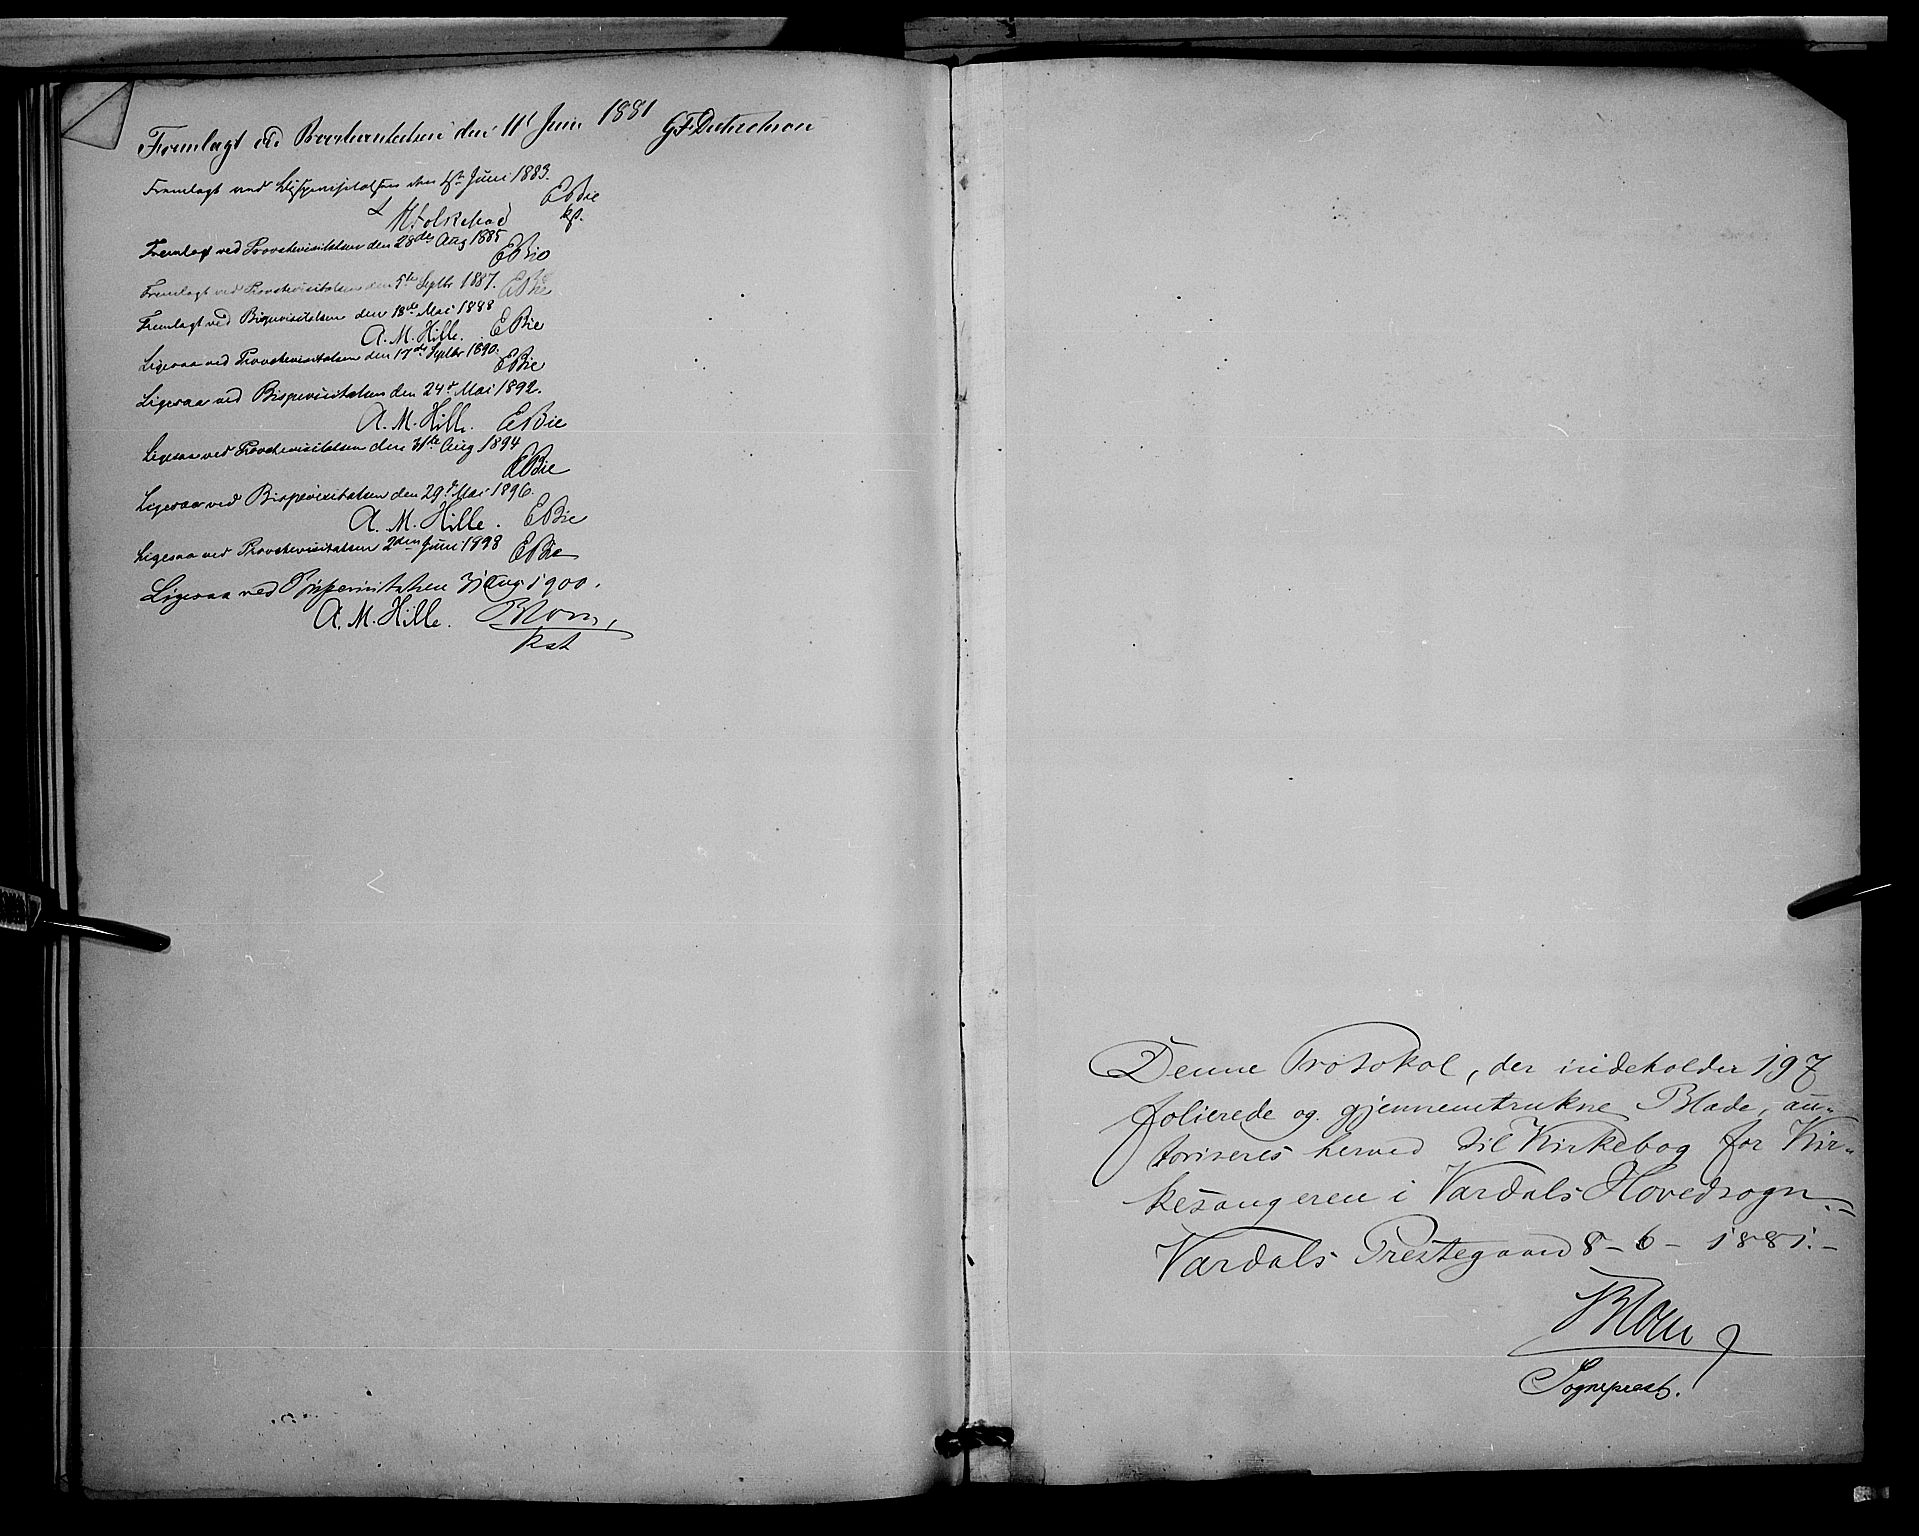 Fremlagt ved den 11t Juni 1881
Fremlagt ved Bispevisitatsen den Juni 1883. EBie
kp.
Fremlagt ved Provstevisitatsen den 28de Aug 1885 EBie
Fremlagt ved Provstevisitatsen den 5te Septbr 1887. EBie
Fremlagt ved Bispevisitatsen den 18de Mai 1888
A. M. Hille. EBie
Ligesaa ved Provstevisitatsen den 17de Septbr 1890. EBie
Ligesaa ved Bispevisitatsen den 24d Mai 1892.
A. M. Hille. EBie
Ligesaa ved Provstevisitatsen den 31te Aug 1894
EBie
Ligesaa ved Bispevisitatsen den 29d Mai 1896.
A. M. Hille. EBie
Ligesaa ved Provstevisitatsen 2den Juni 1898 EBie
Ligesaa ved Bispevisitatsen 31 Aug 1900.
A. M. Hille. Blom,
Denne Protokol, der indeholder 197
folierede og gjennemtrukne Blade, au-
toriseres herved til Kirkebog for Kir-
kesangeren i Vardals Hovedsogn.-
Vardals Prestegaard 8-6-1881.-
Blom
Sogneprest.